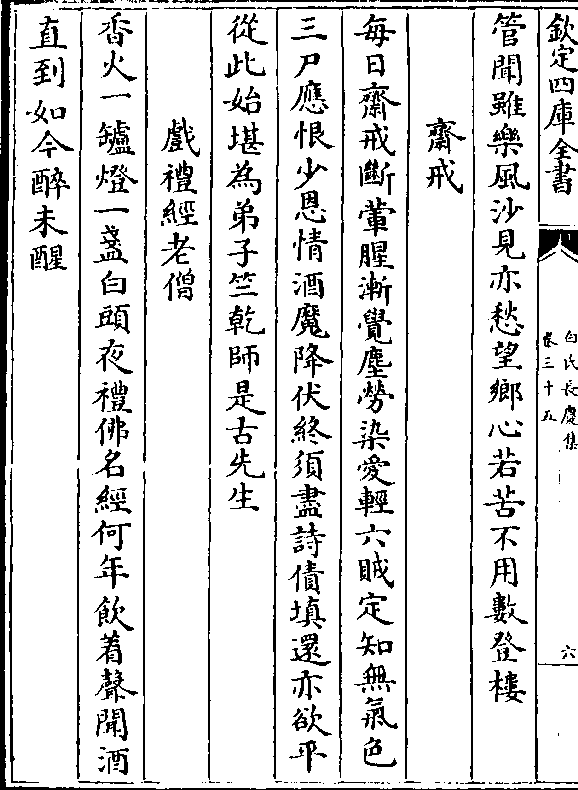 欽定四庫全書
白氏長慶集
卷三十五
六
管聞雖樂風沙見亦愁望鄉心若苦不用數登樓
齋戒
每日齋戒斷葷腥漸覺塵勞染愛輕六賊定知無氣色
三尸應恨少恩情酒魔降伏終須盡詩債填還亦欲平
從此始堪為弟子竺乾師是古先生
戲禮經老僧
香火一罏燈一盞白頭夜禮佛名經何年飲着聲聞酒
直到如今醉未醒